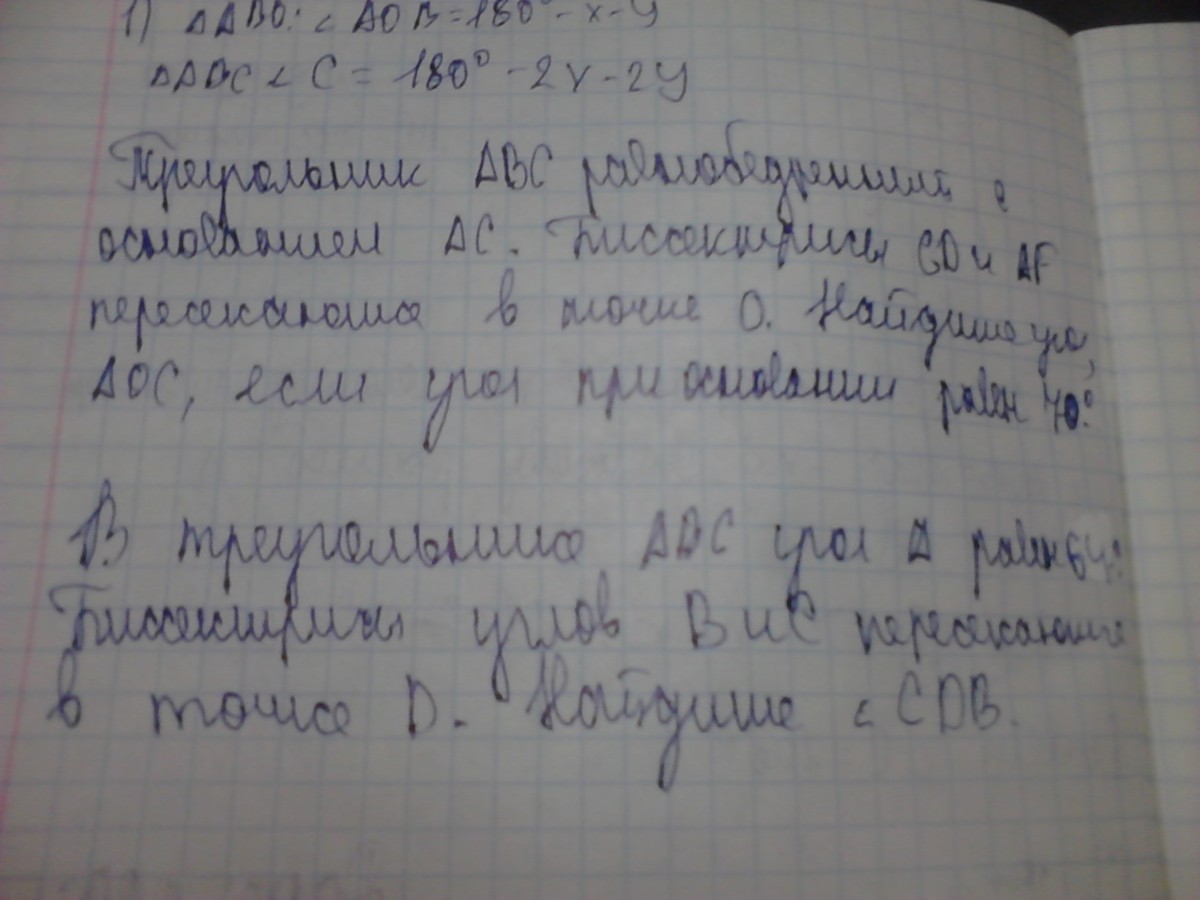 1) △ABO: ∠AOB=180°-x-y
△ABC ∠C = 180° -2x-2y
Треугольник ABC равнобедренный с
основанием AC. Биссектрисы CD и AF
пересекаются в точке O. Найдите угол
AOC, если угол при основании равен 40°.
В треугольнике ABC угол A равен 64°.
Биссектрисы углов B и C пересекаются
в точке D. Найдите ∠CDB.